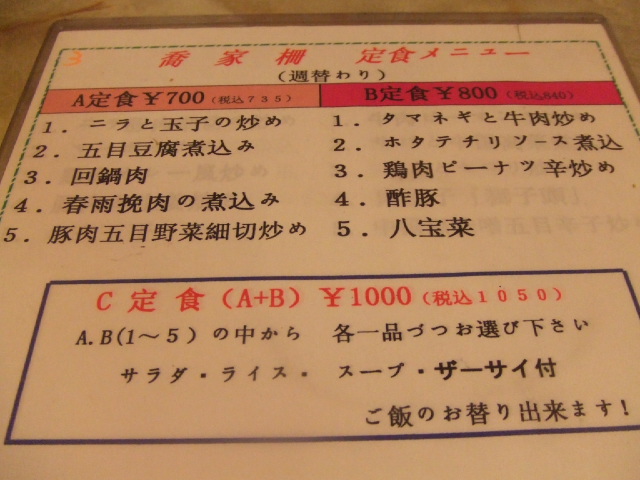 3
喬家柵 定食メニュー
（週替わり）
A定食￥700（税込７３５）
1．ニラと玉子の炒め
2．五目豆腐煮込み
3．回鍋肉
4．春雨挽肉の煮込み
5．豚肉五目野菜細切炒め
B定食￥800（税込840）
1．タマネギと牛肉炒め
2．ホタテチリソース煮込
3．鶏肉ピーナツ辛炒め
4．酢豚
5．八宝菜
C定食（A+B）￥1000（税込１０５０）
A.B(1～5）の中から 各一品づつお選び下さい
サラダ・ライス・ スープ・ザーサイ付
ご飯のお替り出来ます!